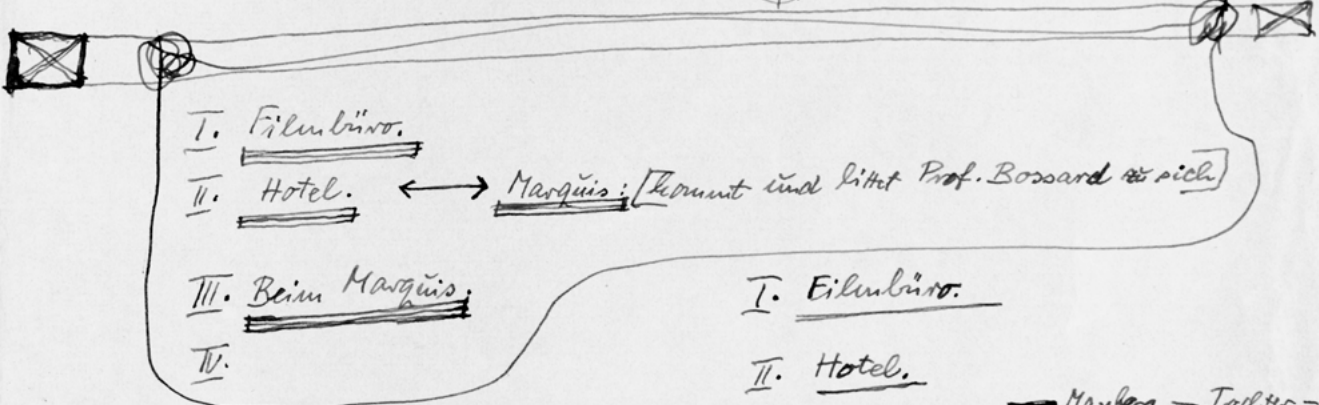 I. Filmbüro.
II. Hotel. ↔ Marquis: [kommt und bittet Prof. Bossard zu sich]
III. Beim Marquis.
IV.
I. Filmbüro.
II. Hotel.